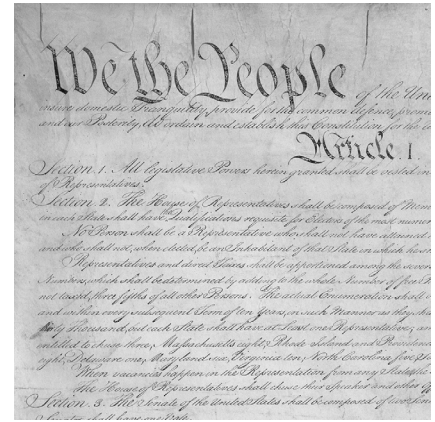 We the People of the Uni
insure domestic Tranquility, provide for the common defence, promo
and our Posterity, do ordain and establish this Constitution for the U
Article. I.
Section. 1. All legislative Powers herein granted shall be vested in
of Representatives.
Section. 2. The House of Representatives shall be composed of Mem
in each State shall have the Qualifications requisite for Electors of the most numer
No Person shall be a Representative who shall not have attained t
and who shall not, when elected, be an Inhabitant of that State in which he sh
Representatives and direct Taxes shall be apportioned among the severa
Numbers, which shall be determined by adding to the whole Number of free P
not taxed, three fifths of all other Persons. The actual Enumeration shall
and within every subsequent Term of ten Years, in such Manner as they sha
thirty Thousand, but each State shall have at Least one Representative; an
entitled to chuse three, Massachusetts eight, Rhode Island and Providence
eight, Delaware one, Maryland six, Virginia ten, North Carolina five, So
When vacancies happen in the Representation from any State, the
The House of Representatives shall chuse their Speaker and other of
Section. 3. The Senate of the United States shall be composed of two Sena
Senator shall have one Vote.